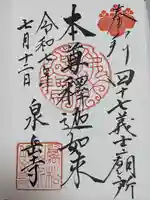 奉拝
四十七義士廟所
本尊釋迦如来
令和七年
七月十二日
泉岳寺